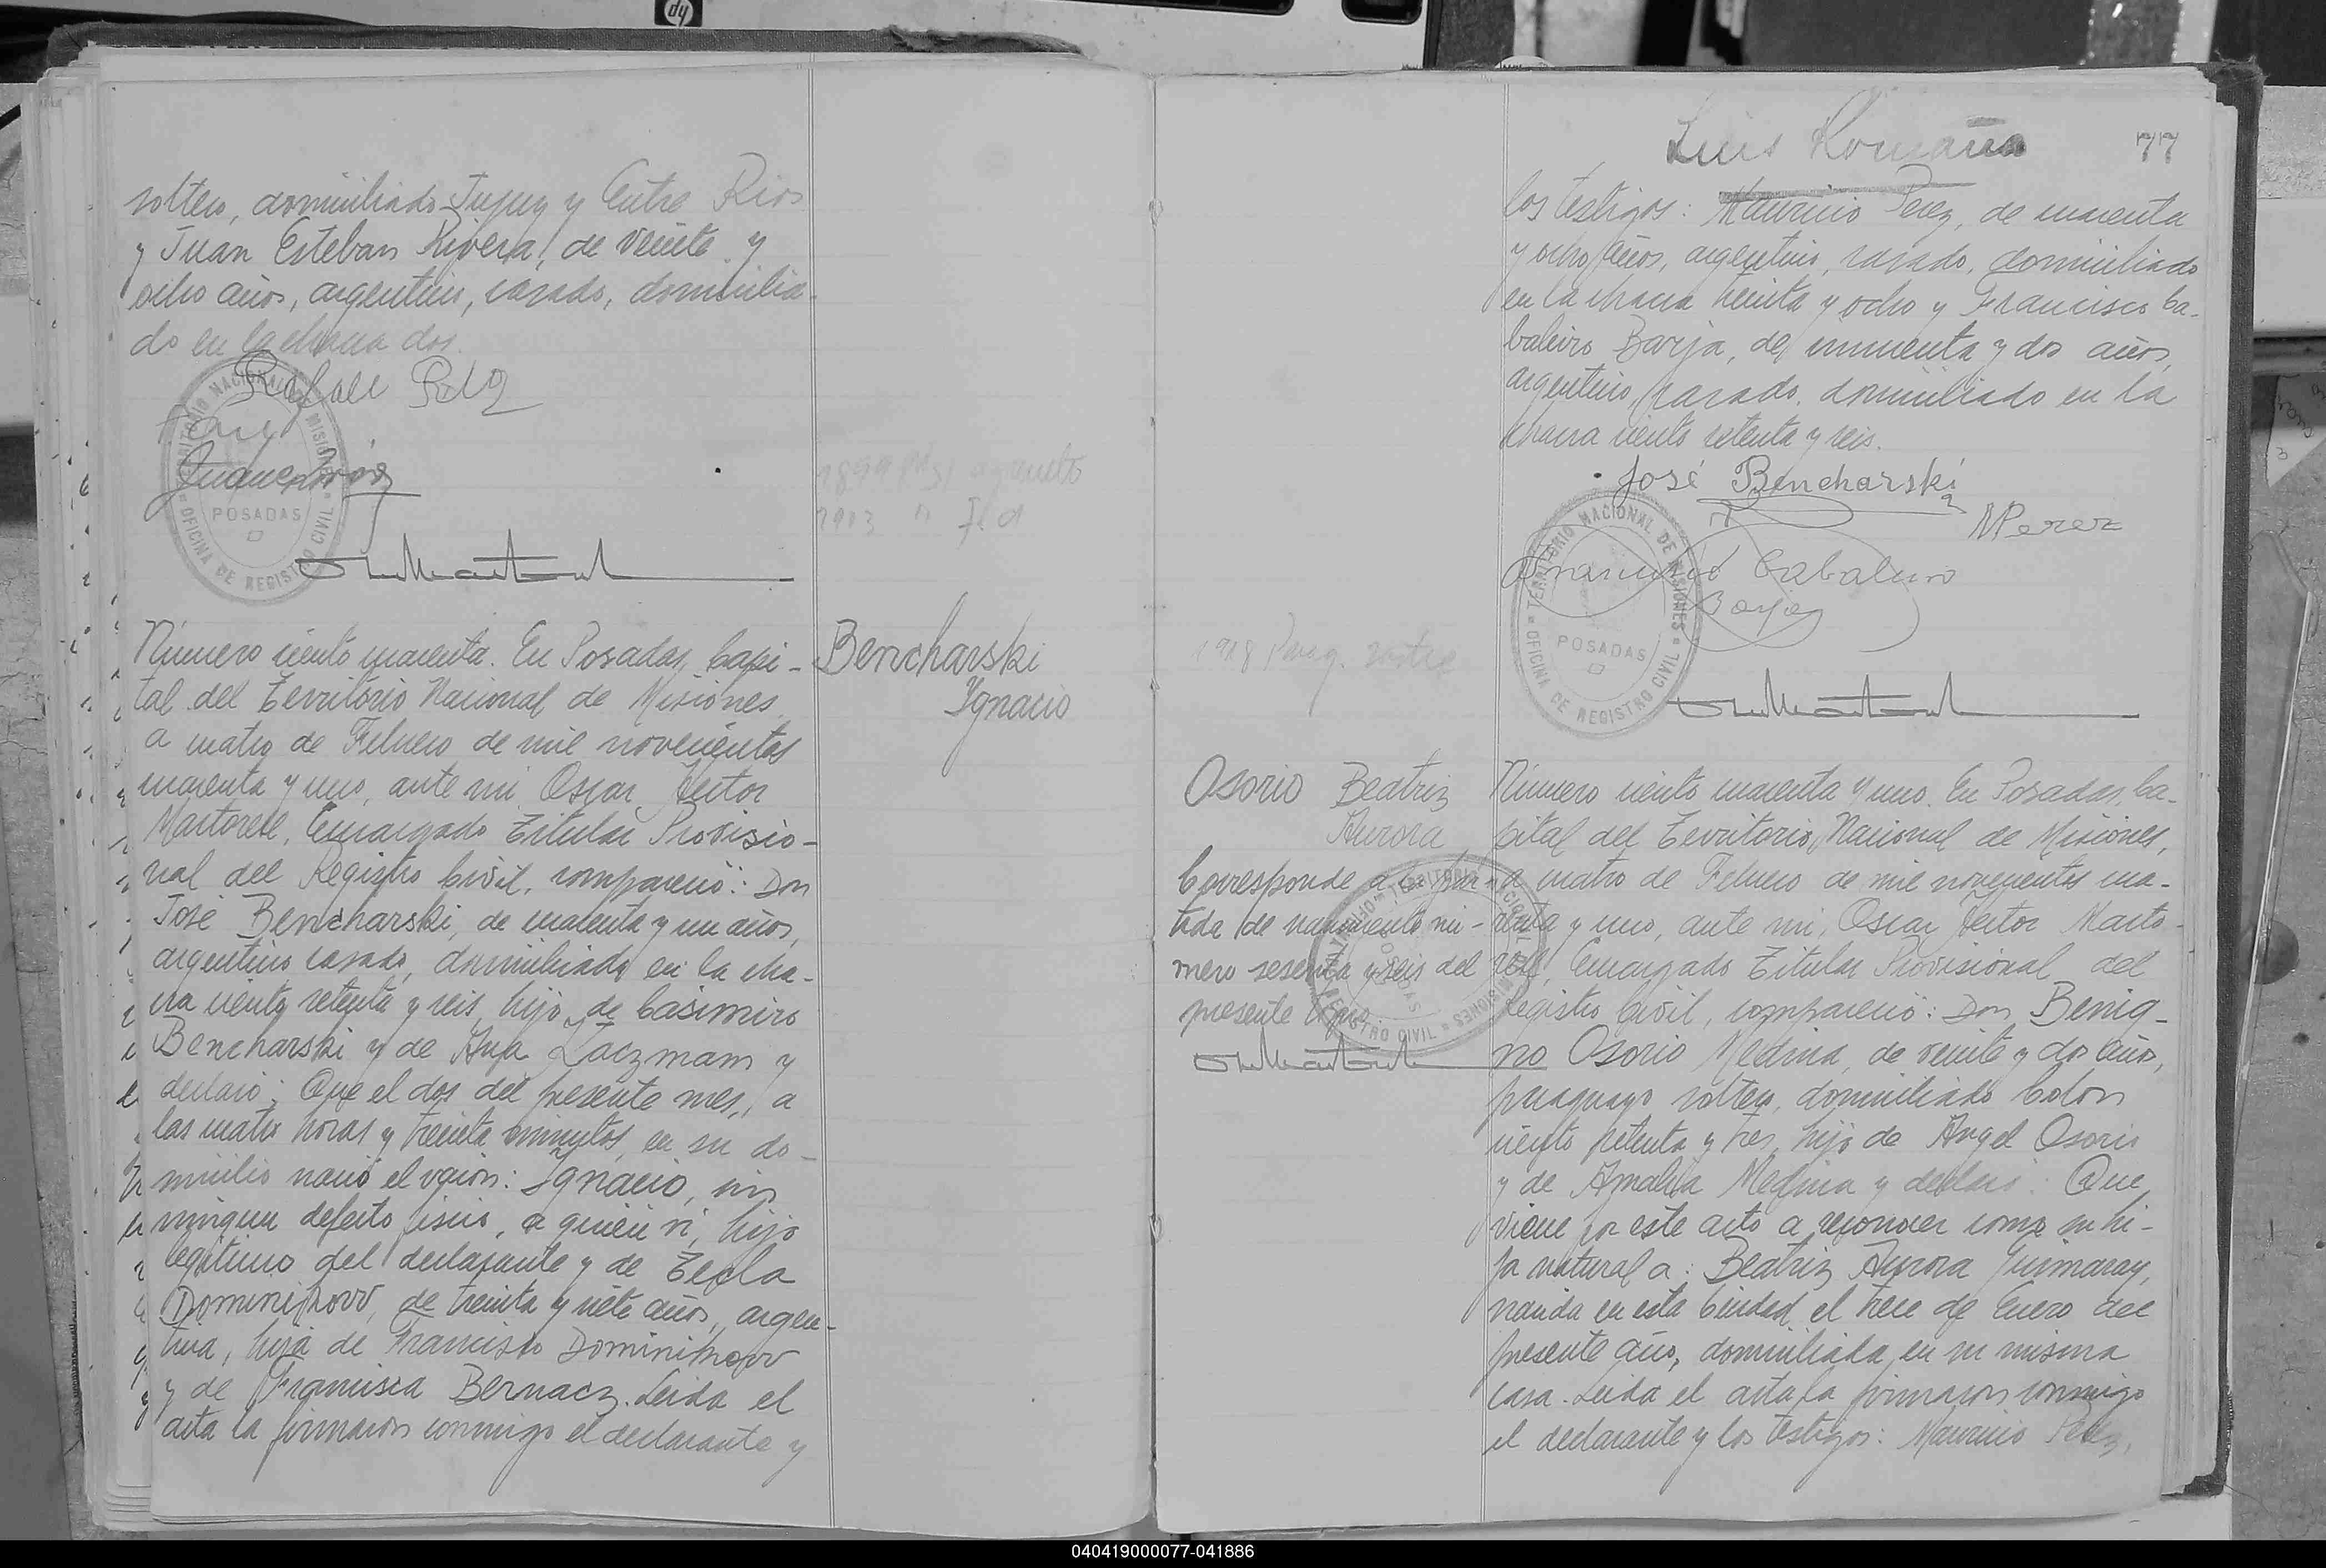 soltero, domiciliado Jujuy y Entre Rios
y Juan Esteban Rivera, de veinte y
ocho años, argentino, casado, domicilia-
do en la chacra dos.
Número ciento cuarenta. En Posadas, Capi-
tal del Territorio Nacional de Misiones
a cuatro de Febrero de mil novecientos
cuarenta y uno, ante mi Oscar Hector
Martorell, Encargado Titular Provisio-
nal del Registro Civil, compareció: Don
José Bencharski, de cuarenta y un años,
argentino casado, domiciliado en la cha-
cra ciento setenta y seis, hijo de Casimiro
Bencharski y de Ana Laczmam y
declaró: Que el dos del presente mes, a
las cuatro horas y treinta minutos, en su do-
micilio nació el varón: Ignacio, sin
ningun defecto fisico, a quien vi, hijo
legitimo del declarante y de Tecla
de treinta y siete años, argen-
tina, hija de Francisco
y de Francisca Bernacz. Leida el
acta la firmaron conmigo el declarante y
Bencharski
Ygnacio
TERRITORIO NACIONAL DE MISIONES
OFICINA DE REGISTRO CIVIL
POSADAS
Luis Romaña
77
los testigos: Mauricio Perez, de cuarenta
y ocho años, argentino, casado, domiciliado
en la chacra treinta y ocho y Francisco Ca-
baleiro Barja, de cincuenta y dos años,
argentino, casado, domiciliado en la
chacra ciento setenta y seis.
José Bencharski
MPerez
Francisco Cabaleiro
Barja
TERRITORIO NACIONAL DE MISIONES
OFICINA DE REGISTRO CIVIL
POSADAS
Osorio Beatriz
Aurora
Corresponde a la par-
tida de nacimiento nú-
mero sesenta y seis del
presente
Número ciento cuarenta y uno. En Posadas, Ca-
pital del Territorio Nacional de Misiones,
a cuatro de Febrero de mil novecientos cua-
renta y uno, ante mi, Oscar Hector Marto-
rell, Encargado Titular Provisional del
Registro Civil, compareció: Don Benig-
no Osorio Medina, de veinte y dos años,
paraguayo soltero, domiciliado Colon
ciento setenta y tres, hijo de Angel Osorio
y de Amalia Medina y declaró: Que
viene por este acto a reconocer como su hi-
ja natural a: Beatriz Aurora Guimaray,
nacida en esta Ciudad el trece de Enero del
presente año, domiciliada en su misma
casa. Leida el acta la firmaron conmigo
el declarante y los testigos: Mauricio Perez,
040419000077-041886